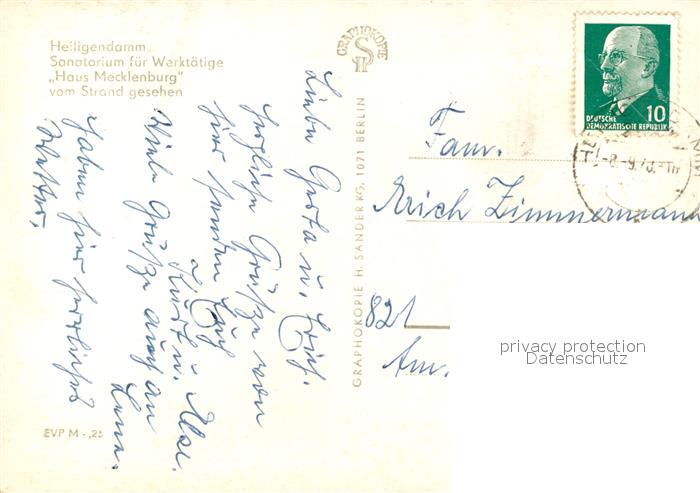 Heiligendamm
Sanatorium für Werktätige
„Haus Mecklenburg"
vom Strand gesehen
GRAPHOKOPIE
H S
DEUTSCHE
DEMOKRATISCHE REPUBLIK
10
-8.-9.70.-11
Liebe Gerta u. Erich.
herzliche Grüße von
hier senden Euch
Kurt u. Else.
Viele Grüße auch an
Lena.
Haben hier herrliches
Wetter.
EVP M -,25
GRAPHOKOPIE H. SANDER KG, 1071 BERLIN
Fam.
Erich Zimmermann
821
Am.
privacy protection
Datenschutz